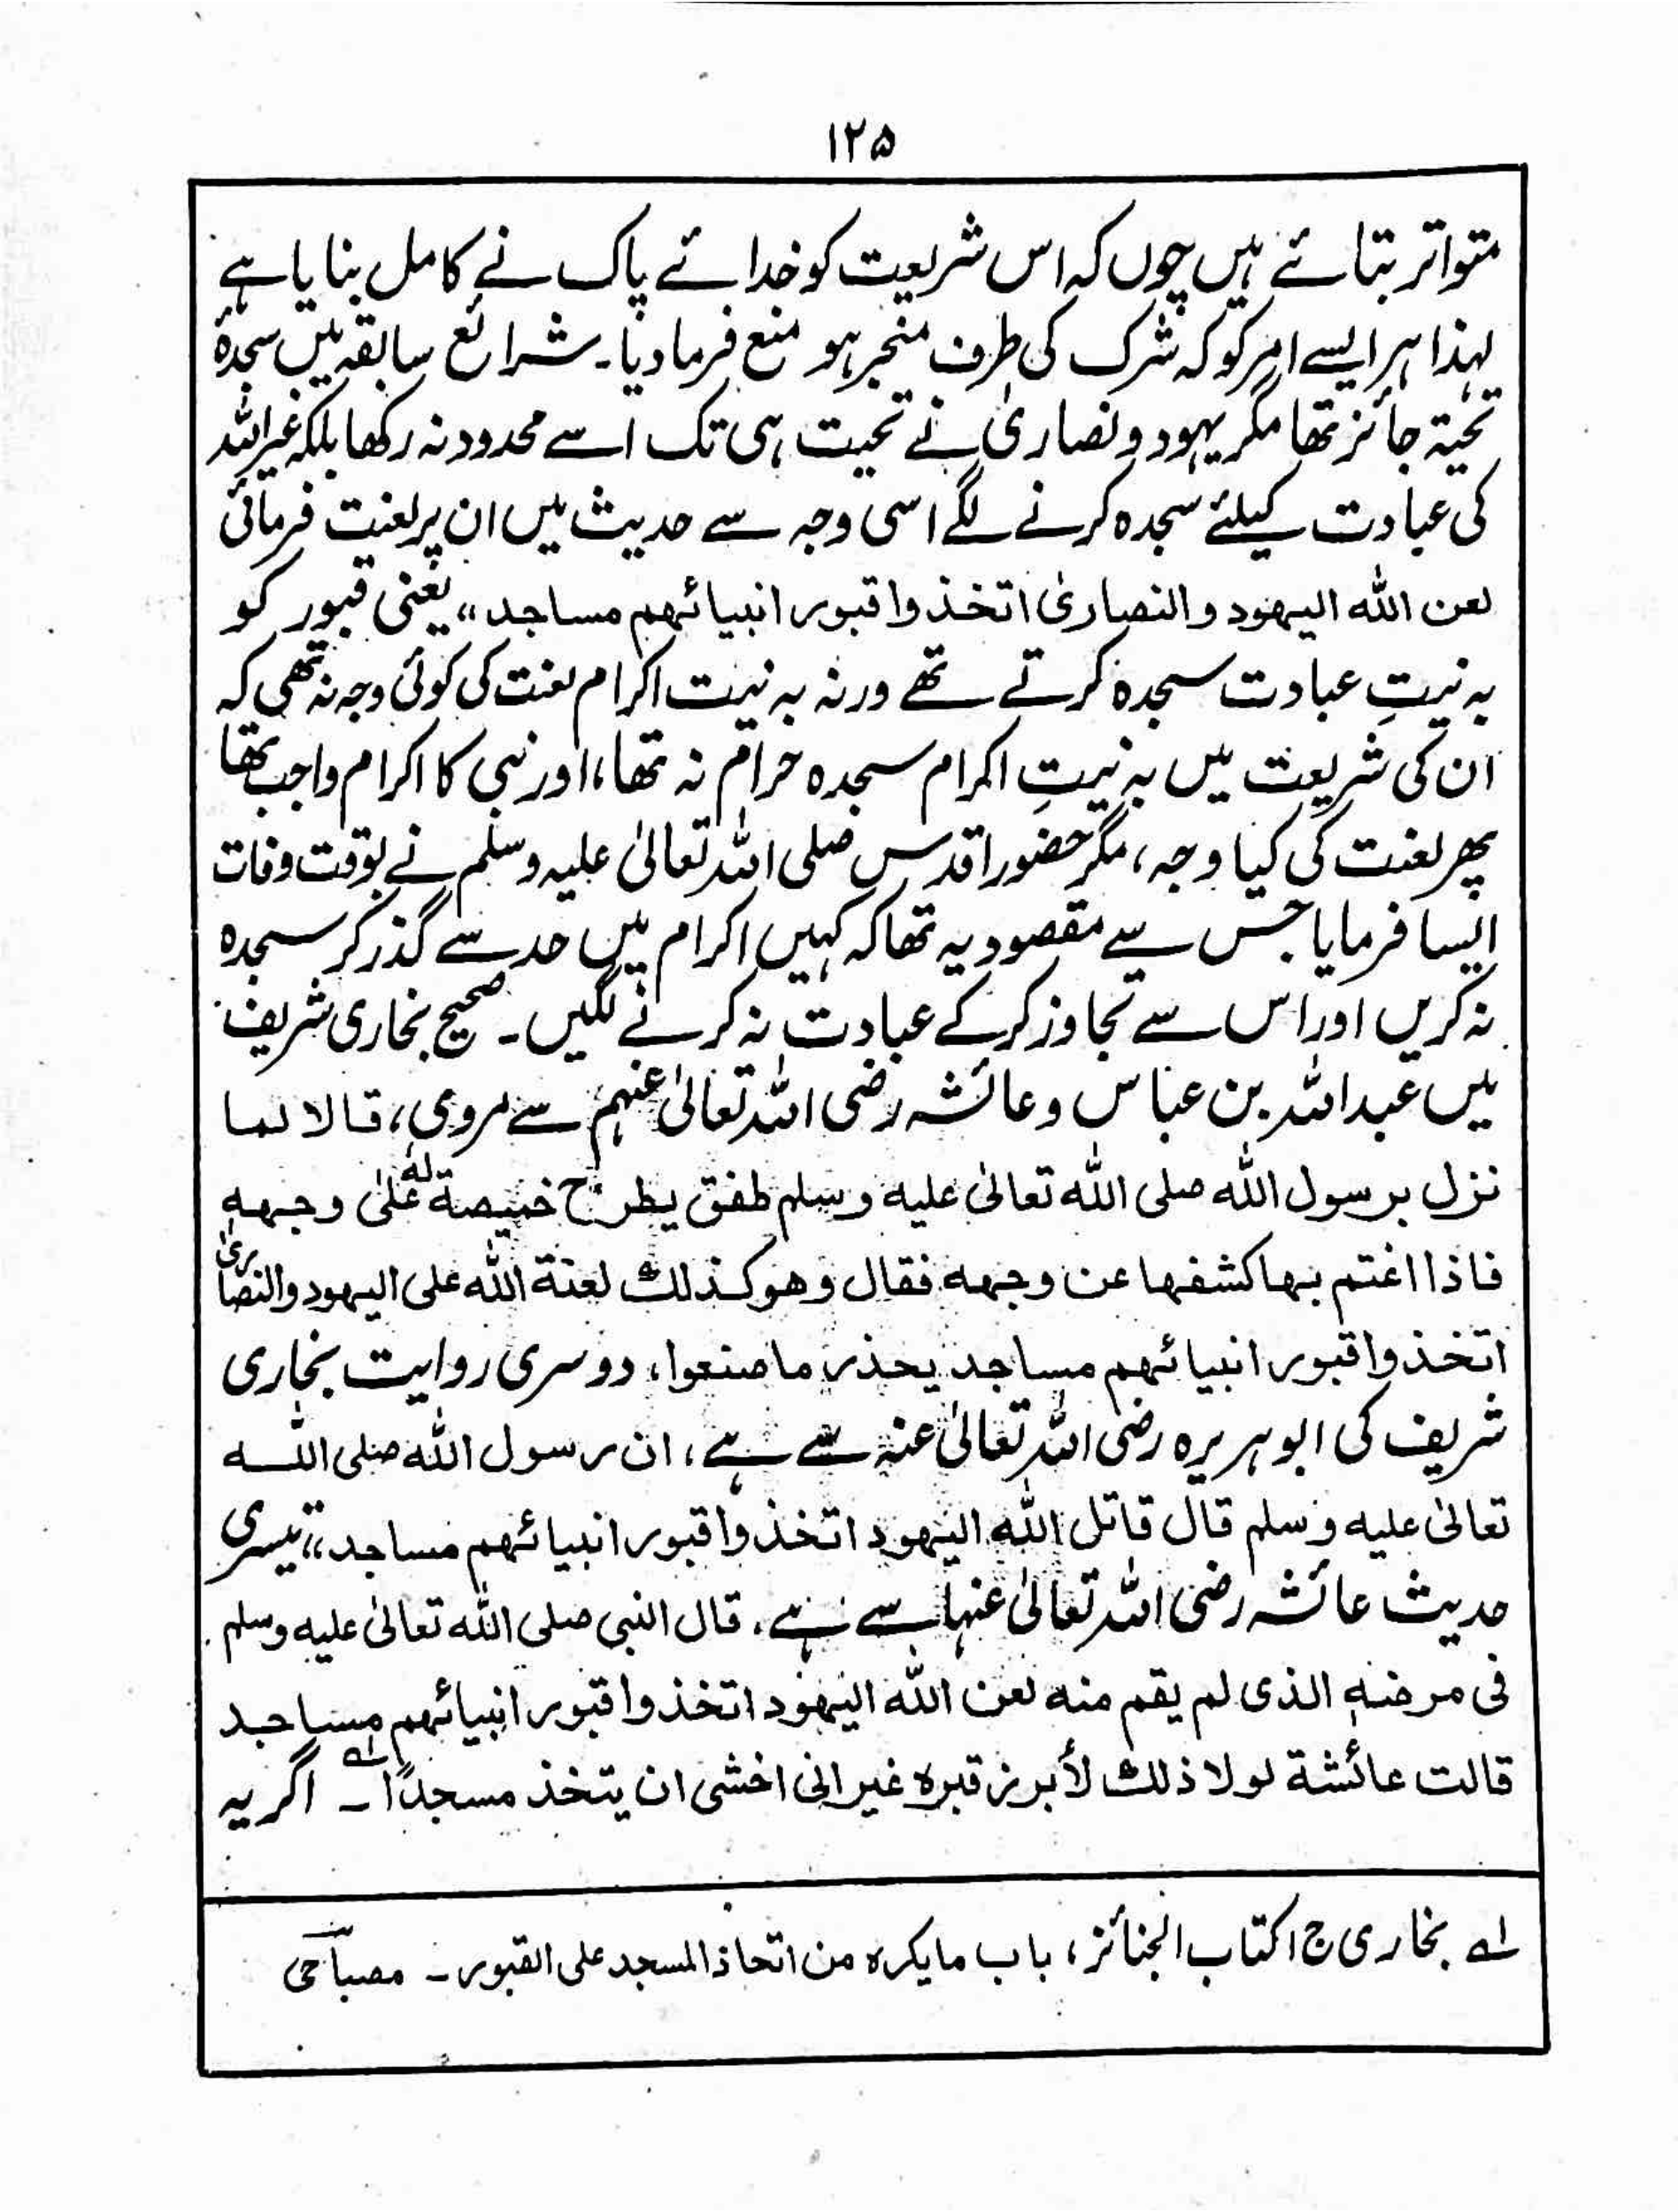 ۱۲۵
متواتر بتائے ہیں چوں کہ اس شریعت کو خدائے پاک نے کامل بنایا ہے
لہذا ہر ایسے امر کو کہ شرک کی طرف منجر ہو منع فرما دیا۔ شرائع سابقہ میں سجدۂ
تحیۃ جائز تھا مگر یہود و نصاریٰ نے تحیت ہی تک اسے محدود نہ رکھا بلکہ غیر اللہ
کی عبادت کیلئے سجدہ کرنے لگے اسی وجہ سے حدیث میں ان پر لعنت فرمائی
لعن الله اليهود والنصارىٰ اتخذوا قبور انبيائهم مساجد،، یعنی قبور کو
بہ نیتِ عبادت سجدہ کرتے تھے ورنہ بہ نیت اکرام لعنت کی کوئی وجہ نہ تھی کہ
ان کی شریعت میں بہ نیتِ اکرام سجدہ حرام نہ تھا، اور نبی کا اکرام واجب تھا
پھر لعنت کی کیا وجہ، مگر حضور اقدس صلی اللہ تعالیٰ علیہ وسلم نے بوقت وفات
ایسا فرمایا جس سے مقصود یہ تھا کہ کہیں اکرام میں حد سے گذر کر سجدہ
نہ کریں اور اس سے تجاوز کرکے عبادت نہ کرنے لگیں۔ صحیح بخاری شریف
میں عبد اللہ بن عباس و عائشہ رضی اللہ تعالیٰ عنہم سے مروی، قالا لما
نزل برسول الله صلى الله تعالىٰ عليه وسلم طفق يطرح خميصة له علىٰ وجهه
فاذا اغتم بها كشفها عن وجهه فقال وهو كذلك لعنة الله على اليهود والنصارىٰ
اتخذوا قبور انبيائهم مساجد يحذر ما صنعوا، دوسری روایت بخاری
شریف کی ابو ہریرہ رضی اللہ تعالیٰ عنہ سے ہے، ان رسول الله صلى الله
تعالىٰ عليه وسلم قال قاتل الله اليهود اتخذوا قبور انبيائهم مساجد،، تیسری
حدیث عائشہ رضی اللہ تعالیٰ عنہا سے ہے۔ قال النبى صلى الله تعالىٰ عليه وسلم
فى مرضه الذى لم يقم منه لعن الله اليهود اتخذوا قبور انبيائهم مساجد
قالت عائشة لولا ذلك لأبرز قبره غير انى اخشى ان يتخذ مسجدًا ؎۱ ۔ اگر یہ
؎۱ بخاری ج۱ کتاب الجنائز، باب ما یکرہ من اتخاذ المسجد علی القبور۔ مصباحی